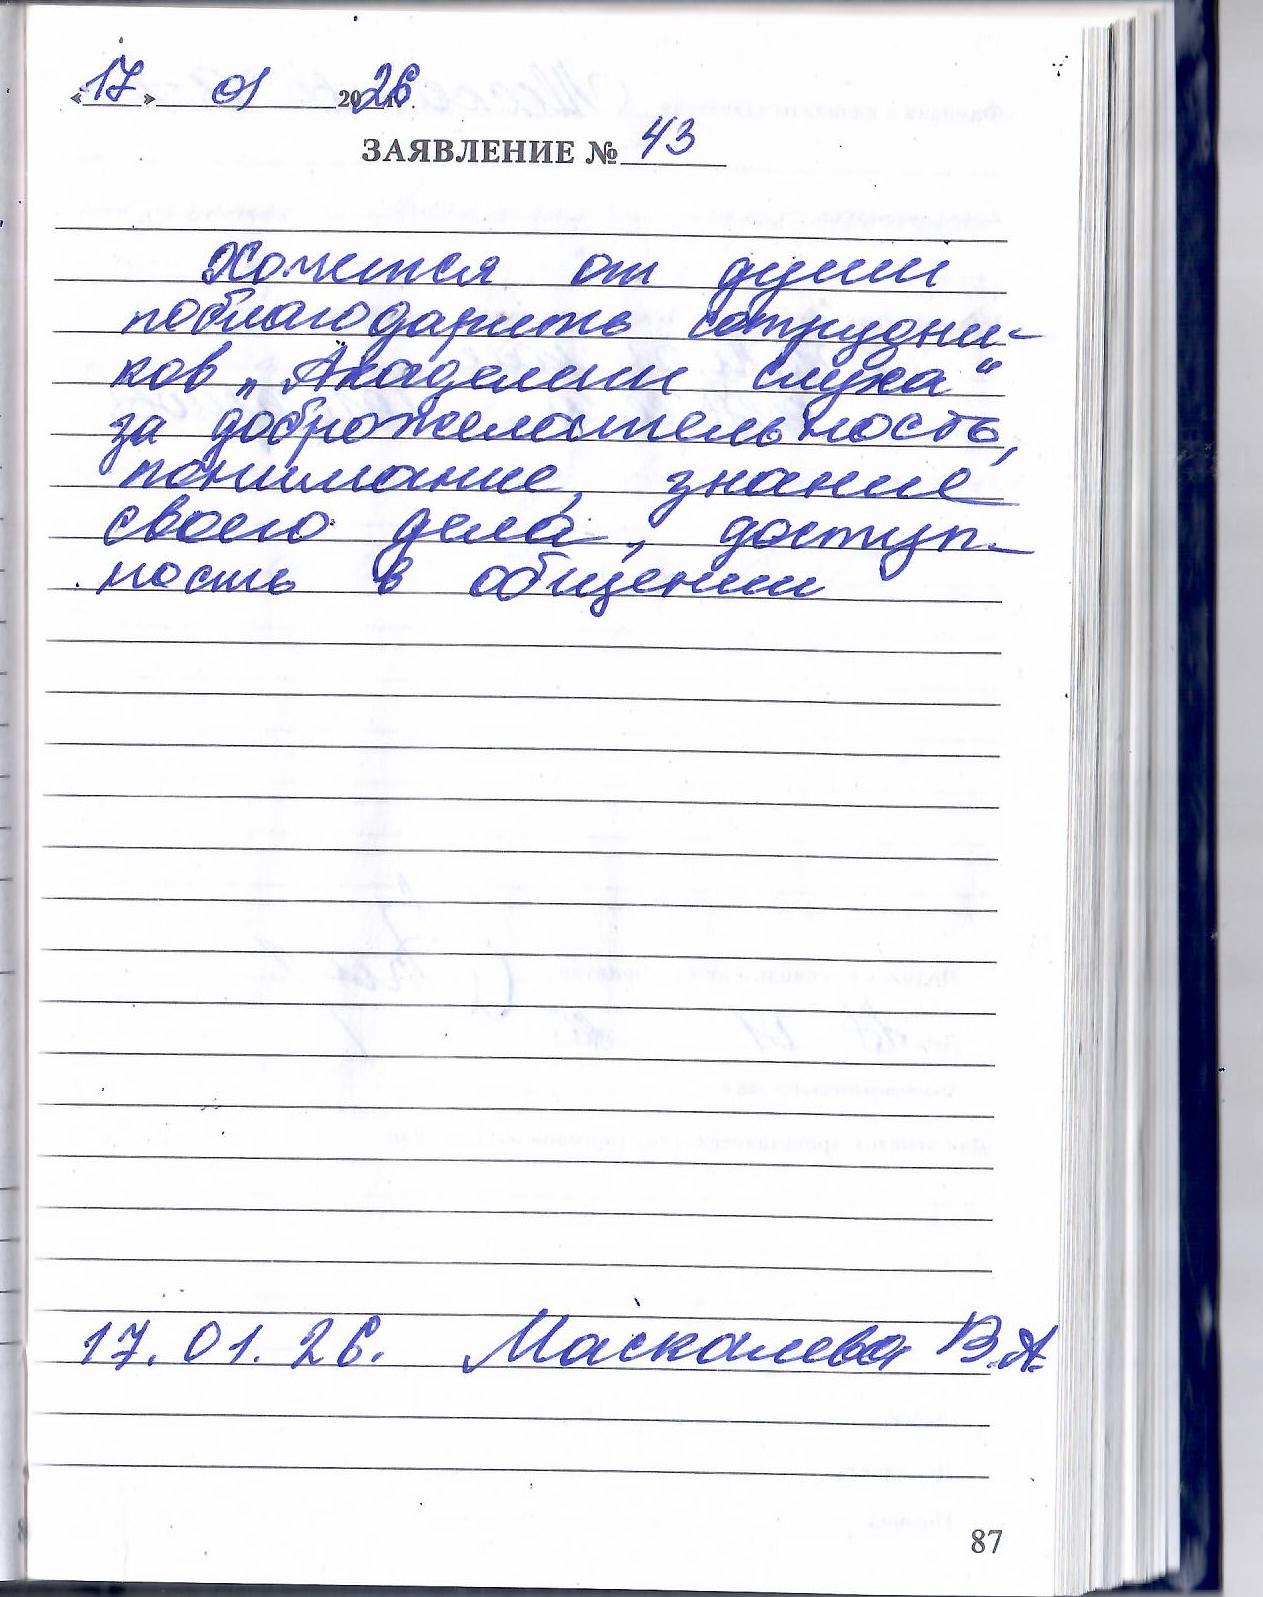 «17» 01 2026
ЗАЯВЛЕНИЕ № 43
Хочется от души
поблагодарить сотрудни-
ков „Академии слуха“
за доброжелательность,
понимание, знание
своего дела, доступ-
ность в общении
17.01.26. Маскалева В.А.
87